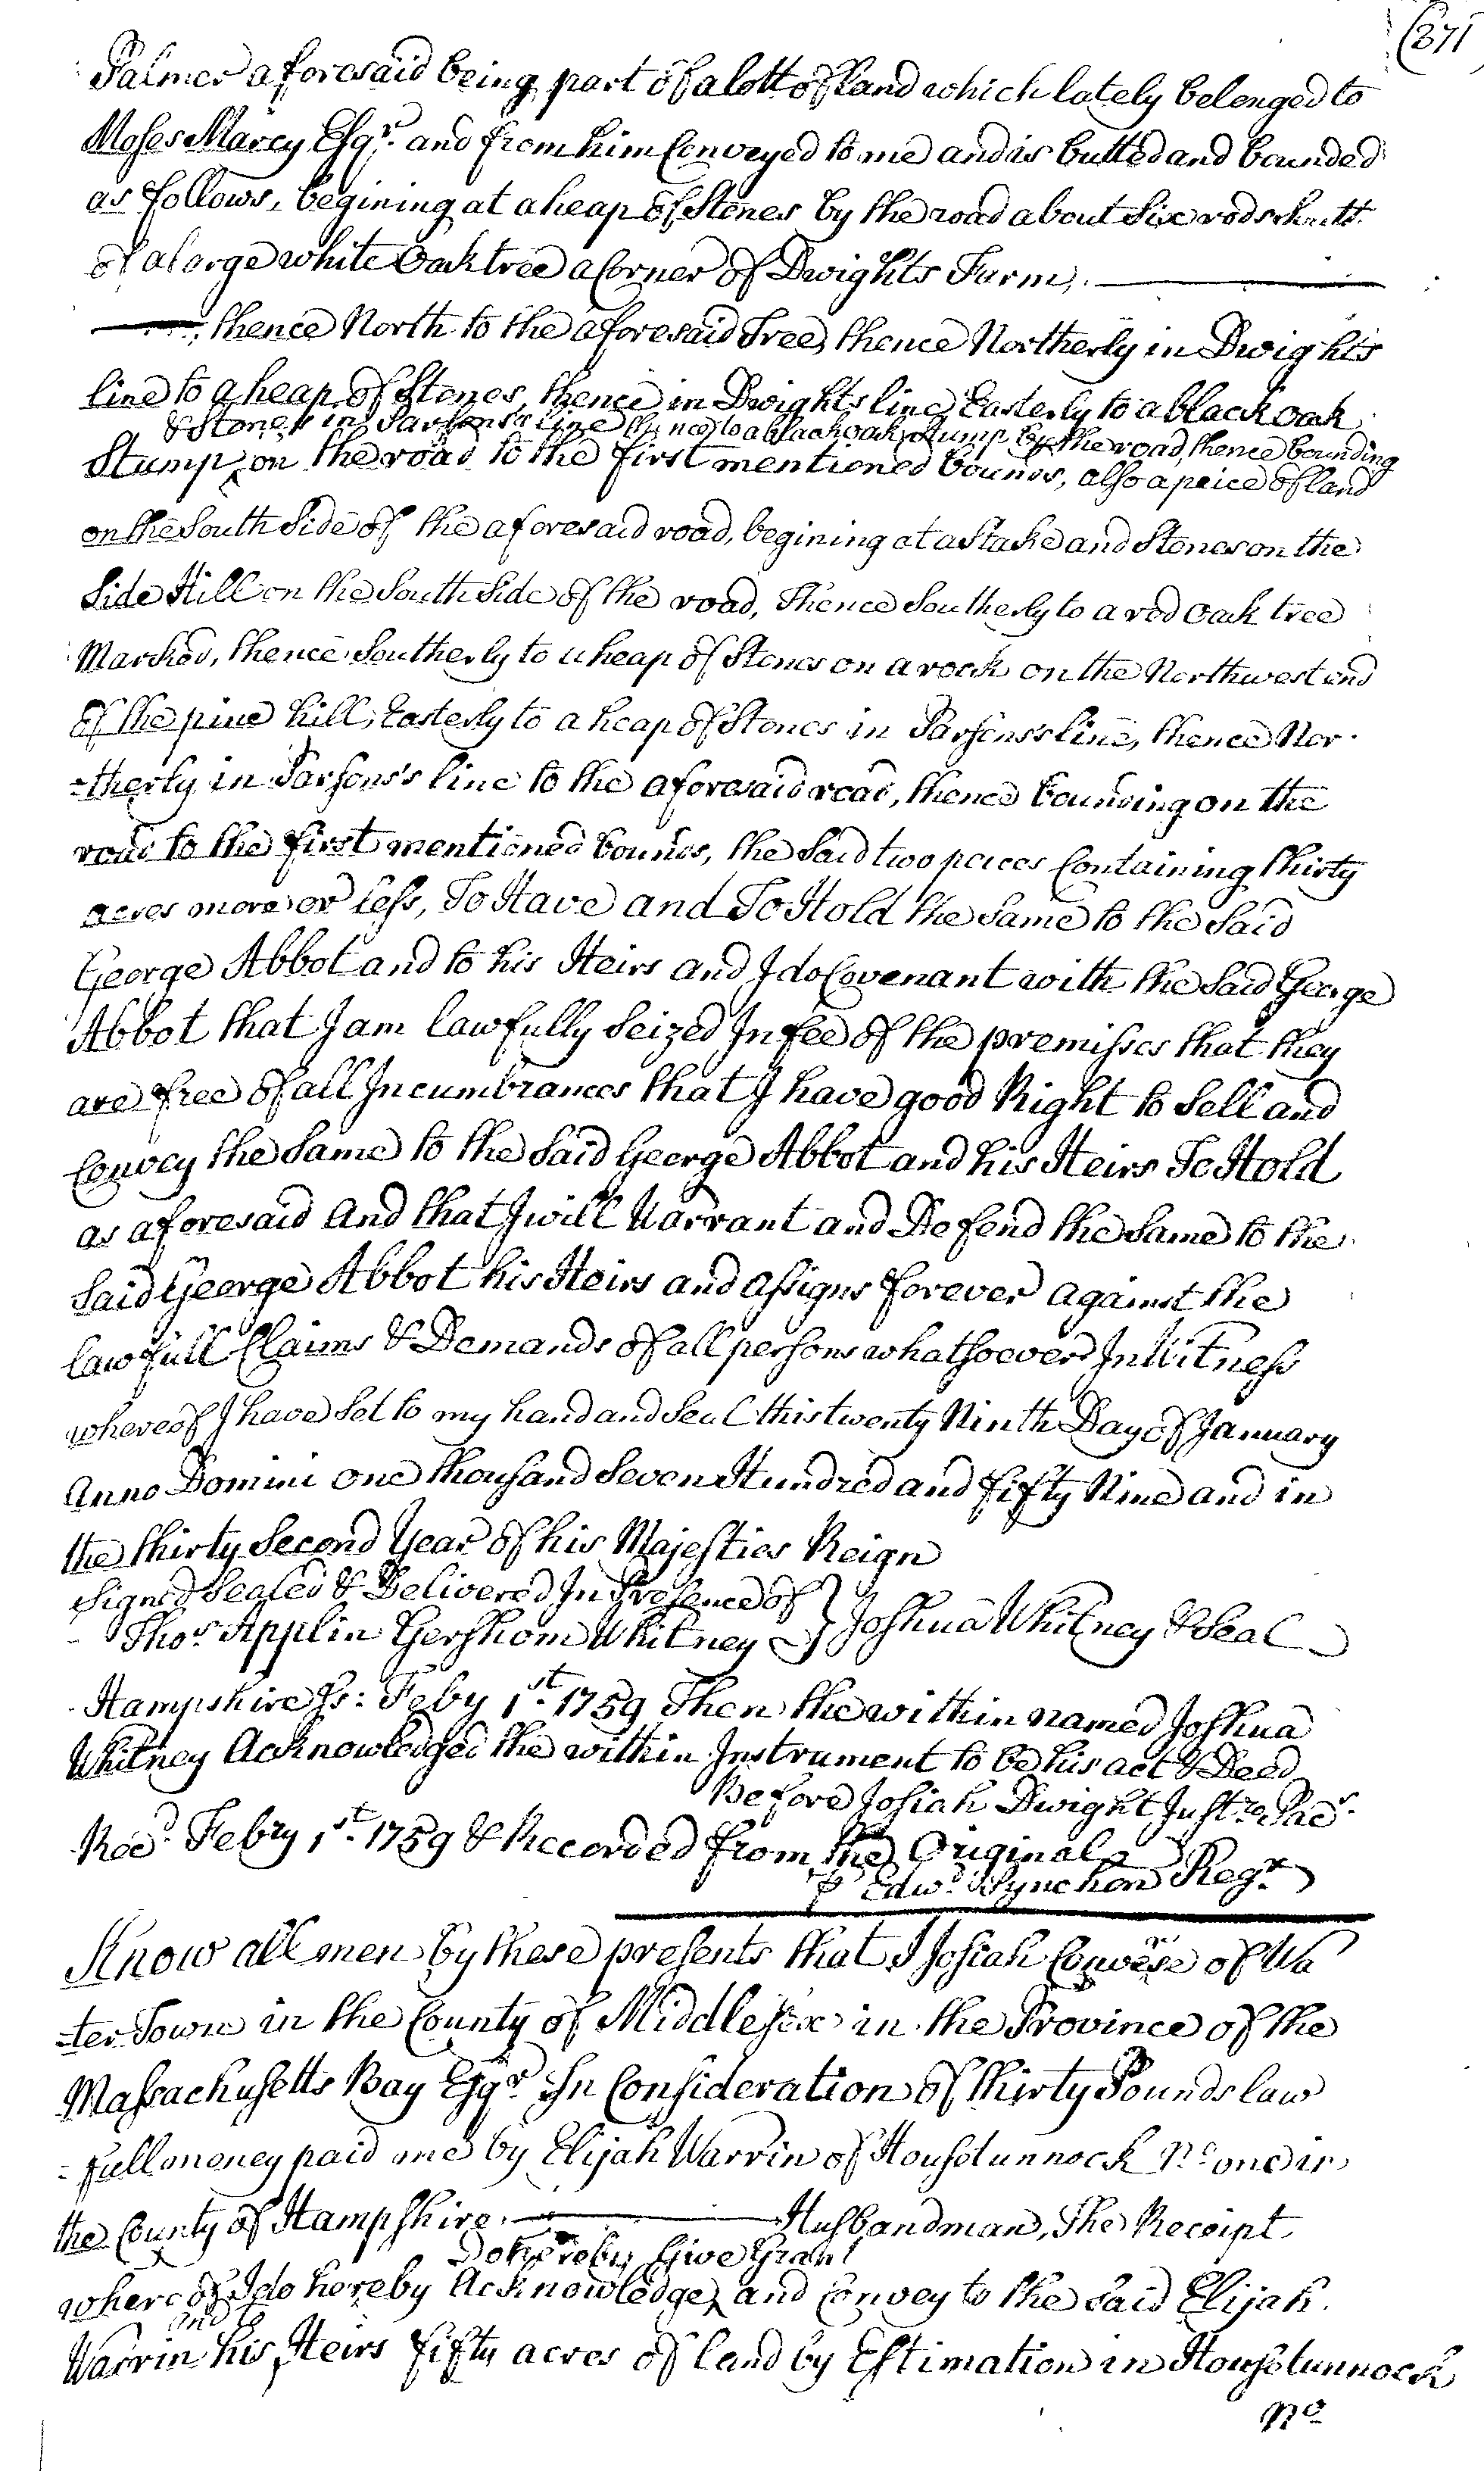 (371
Palmer aforesaid being part of a lott of land which lately belonged to
Moses Marcy Esqr. and from him Conveyed to me and is butted and bounded
as follows, begining at a heap of Stones by the road about Six rods
of a large white Oak tree a Corner of Dwights Farm,
thence North to the aforesaid Tree, thence Northerly in Dwights
line to a heap of Stones, thence in Dwights line Easterly to a black oak
& Stones in Parsons's line thence to a black oak stump by the road, thence bounding
Stump ‸ on the road to the first mentioned bounds, also a peice of land
on the South Side of the aforesaid road, begining at a Stake and Stones on the
Side Hill on the South Side of the road, Thence Southerly to a red Oak tree
Marked, thence Southerly to a heap of Stones on a rock on the Northwest end
of the pine hill, Easterly to a heap of Stones in Parsons's line, thence Nor
=therly in Parsons's line to the aforesaid road, thence bounding on the
road to the first mentioned bounds, the Said two peices Containing thirty
acres more or less, To Have and To Hold the Same to the Said
George Abbot and to his Heirs and I do Covenant with the Said George
Abbot that I am lawfully Seized In fee of the premisses that they
are free of all Incumbrances that I have good Right to Sell and
Convey the Same to the Said George Abbot and his Heirs To Hold
as aforesaid And that I will Warrant and Defend the Same to the
Said George Abbot his Heirs and assigns forever against the
lawfull Claims & Demands of all persons whatsoever In Witness
whereof I have Set to my hand and Seal this twenty Ninth Day of January
Anno Domini one thousand Seven Hundred and fifty Nine and in
the thirty Second Year of his Majesties Reign
Signed Sealed & Delivered In Presence of }
Thos Applin Gershom Whitney } Joshua Whitney & Seal
Hampshire Ss: Feby 1st. 1759 Then the within named Joshua
Whitney Acknowledged the within Instrument to be his act & Deed
Before Josiah Dwight Justce Pacs.
Recd. Febry 1st. 1759 & Recorded from the Original
P Edwd Pynchon Regr.
Know all men by these presents that I Josiah Converse of Wa
=ter Town in the County of Middlesex in the Province of the
Massachusetts Bay Esqr In Consideration of thirty Pounds law
=full money paid me by Elijah Warrin of Housotunnock No one in
the County of Hampshire Husbandman, The Receipt
Do hereby Give Grant
whereof I do hereby Acknowledge ‸ and Convey to the said Elijah
and to
Warrin ‸ his Heirs fifty acres of land by Estimation in Housotunnock
No